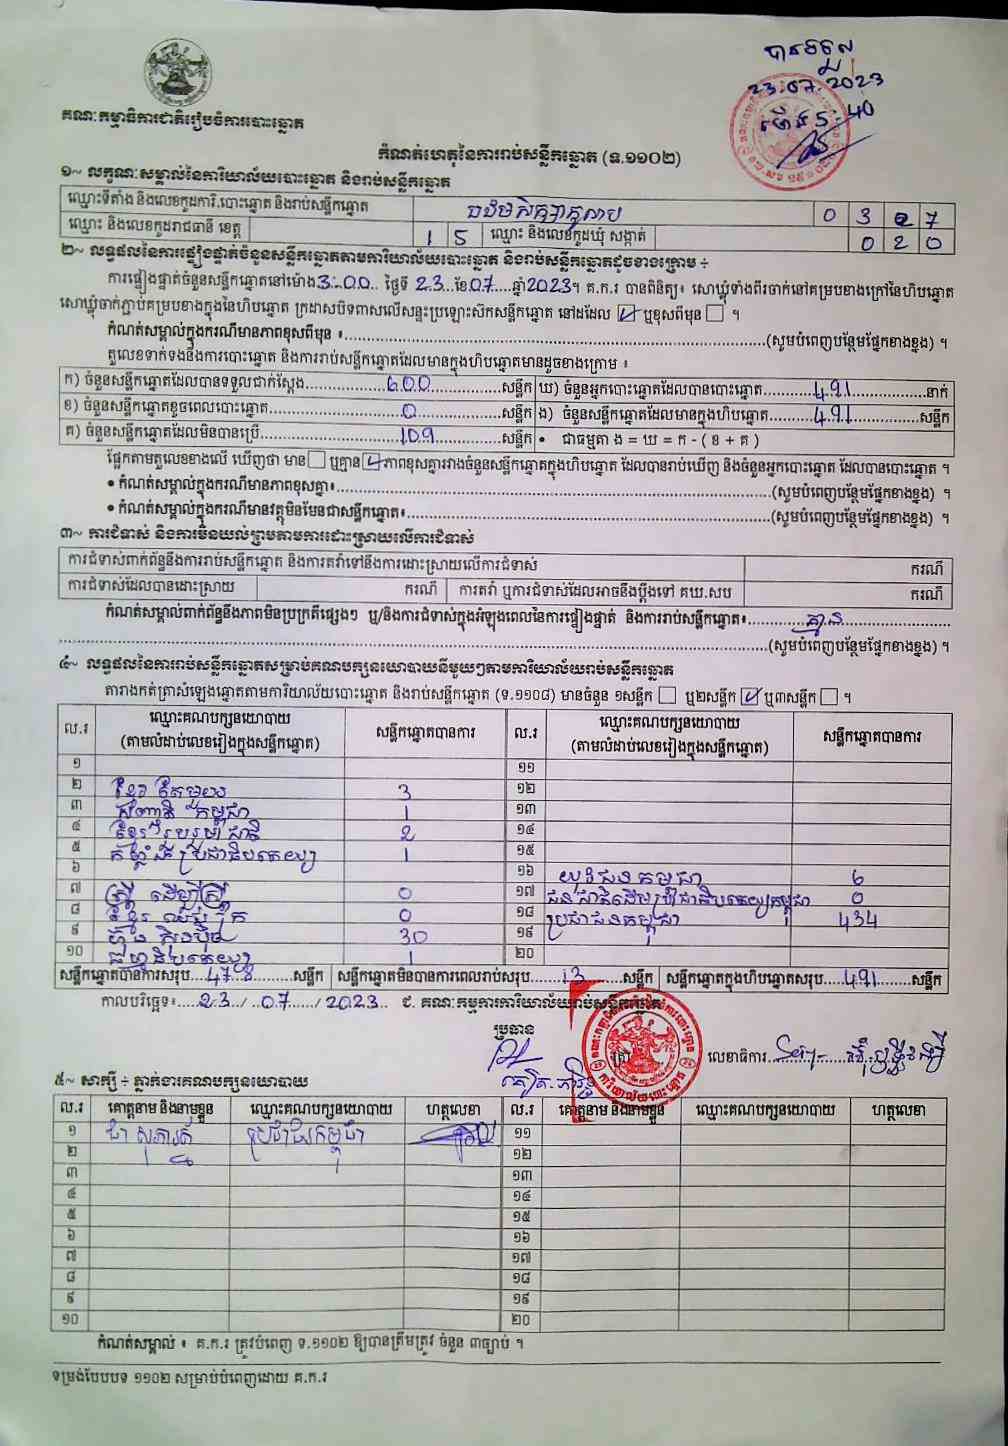 បានចូល
23.07.2023
ម៉ោង 5:40
គណៈកម្មាធិការជាតិរៀបចំការបោះឆ្នោត
កំណត់ហេតុនៃការរាប់សន្លឹកឆ្នោត (ទ.១១០២)
១~ លក្ខណៈសម្គាល់នៃការិយាល័យបោះឆ្នោត និងរាប់សន្លឹកឆ្នោត
ឈ្មោះទីតាំង និងលេខកូដការិ.បោះឆ្នោត និងរាប់សន្លឹកឆ្នោត 0 3 2 7
ឈ្មោះ និងលេខកូដរាជធានី ខេត្ត 1 5 ឈ្មោះ និងលេខកូដឃុំ សង្កាត់ 0 2 0
២~ លទ្ធផលនៃការផ្ទៀងផ្ទាត់ចំនួនសន្លឹកឆ្នោតតាមការិយាល័យបោះឆ្នោត និងរាប់សន្លឹកឆ្នោតដូចខាងក្រោម ÷
ការផ្ទៀងផ្ទាត់ចំនួនសន្លឹកឆ្នោតនៅម៉ោង 3:00 ថ្ងៃទី 23 ខែ 07 ឆ្នាំ 2023។ គ.ក.រ បានពិនិត្យ៖ សោឃ្លុំទាំងពីរចាក់នៅគម្របខាងក្រៅនៃហិបឆ្នោត
សោឃ្លុំចាក់ភ្ជាប់គម្របខាងក្នុងនៃហិបឆ្នោត ក្រដាសបិទពាសលើសន្ទះប្រឡោះស៊កសន្លឹកឆ្នោត នៅដដែល ☑ ឬខុសពីមុន ☐ ។
កំណត់សម្គាល់ក្នុងករណីមានភាពខុសពីមុន ៖..........(សូមបំពេញបន្ថែមផ្នែកខាងខ្នង) ។
តួលេខទាក់ទងនឹងការបោះឆ្នោត និងការរាប់សន្លឹកឆ្នោតដែលមានក្នុងហិបឆ្នោតមានដូចខាងក្រោម ៖
ក) ចំនួនសន្លឹកឆ្នោតដែលបានទទួលជាក់ស្តែង.....600.....សន្លឹក ឃ) ចំនួនអ្នកបោះឆ្នោតដែលបានបោះឆ្នោត.....491.....នាក់
ខ) ចំនួនសន្លឹកឆ្នោតខូចពេលបោះឆ្នោត.....0.....សន្លឹក ង) ចំនួនសន្លឹកឆ្នោតដែលមានក្នុងហិបឆ្នោត.....491.....សន្លឹក
គ) ចំនួនសន្លឹកឆ្នោតដែលមិនបានប្រើ.....109.....សន្លឹក • ជាធម្មតា ង = ឃ = ក - ( ខ + គ )
ផ្អែកតាមតួលេខខាងលើ ឃើញថា មាន ☐ ឬគ្មាន ☑ ភាពខុសគ្នារវាងចំនួនសន្លឹកឆ្នោតក្នុងហិបឆ្នោត ដែលបានរាប់ឃើញ និងចំនួនអ្នកបោះឆ្នោត ដែលបានបោះឆ្នោត ។
• កំណត់សម្គាល់ក្នុងករណីមានភាពខុសគ្នា៖..........(សូមបំពេញបន្ថែមផ្នែកខាងខ្នង) ។
• កំណត់សម្គាល់ក្នុងករណីមានវត្ថុមិនមែនជាសន្លឹកឆ្នោត៖..........(សូមបំពេញបន្ថែមផ្នែកខាងខ្នង) ។
៣~ ការជំទាស់ និងការមិនយល់ព្រមតាមការដោះស្រាយលើការជំទាស់
ការជំទាស់ពាក់ព័ន្ធនឹងការរាប់សន្លឹកឆ្នោត និងការតវ៉ាទៅនឹងការដោះស្រាយលើការជំទាស់ ករណី
ការជំទាស់ដែលបានដោះស្រាយ ករណី ការតវ៉ា ឬការជំទាស់ដែលអាចនឹងប្តឹងទៅ គឃ.សប ករណី
កំណត់សម្គាល់ពាក់ព័ន្ធនឹងភាពមិនប្រក្រតីផ្សេងៗ ឬ/និងការជំទាស់ក្នុងអំឡុងពេលនៃការផ្ទៀងផ្ទាត់ និងការរាប់សន្លឹកឆ្នោត៖.....គ្មាន.....
..........(សូមបំពេញបន្ថែមផ្នែកខាងខ្នង) ។
៤~ លទ្ធផលនៃការរាប់សន្លឹកឆ្នោតសម្រាប់គណបក្សនយោបាយនីមួយៗតាមការិយាល័យរាប់សន្លឹកឆ្នោត
តារាងកត់ត្រាសំឡេងឆ្នោតតាមការិយាល័យបោះឆ្នោត និងរាប់សន្លឹកឆ្នោត (ទ.១១០៨) មានចំនួន ១សន្លឹក ☐ ឬ២សន្លឹក ☑ ឬ៣សន្លឹក ☐ ។
ល.រ ឈ្មោះគណបក្សនយោបាយ (តាមលំដាប់លេខរៀងក្នុងសន្លឹកឆ្នោត) សន្លឹកឆ្នោតបានការ ល.រ ឈ្មោះគណបក្សនយោបាយ (តាមលំដាប់លេខរៀងក្នុងសន្លឹកឆ្នោត) សន្លឹកឆ្នោតបានការ
១ ១១
២ ខ្មែរ តែមួយ 3 ១២
៣ សញ្ជាតិ កម្ពុជា 1 ១៣
៤ ខ្មែររួបរួមជាតិ 2 ១៤
៥ កម្លាំង ប្រជាធិបតេយ្យ 1 ១៥
៦ ១៦ យុវជនកម្ពុជា 6
៧ ស្ត្រី ដើម្បីស្ត្រី 0 ១៧ ជនជាតិដើមប្រជាធិបតេយ្យកម្ពុជា 0
៨ ខ្មែរ ឈប់ ក្រ 0 ១៨ ប្រជាជនកម្ពុជា 434
៩ ហ៊្វុនស៊ិនប៉ិច 30 ១៩
១០ ធម្មាធិបតេយ្យ 1 ២០
សន្លឹកឆ្នោតបានការសរុប.....478.....សន្លឹក សន្លឹកឆ្នោតមិនបានការពេលរាប់សរុប.....13.....សន្លឹក សន្លឹកឆ្នោតក្នុងហិបឆ្នោតសរុប.....491.....សន្លឹក
កាលបរិច្ឆេទ៖ 23 / 07 / 2023 ជ. គណៈកម្មការការិយាល័យរាប់សន្លឹកឆ្នោត
ប្រធាន
លេខាធិការ
៥~ សាក្សី ÷ ភ្នាក់ងារគណបក្សនយោបាយ
ល.រ គោត្តនាម និងនាមខ្លួន ឈ្មោះគណបក្សនយោបាយ ហត្ថលេខា ល.រ គោត្តនាម និងនាមខ្លួន ឈ្មោះគណបក្សនយោបាយ ហត្ថលេខា
១ ប្រជាជនកម្ពុជា ១១
២ ១២
៣ ១៣
៤ ១៤
៥ ១៥
៦ ១៦
៧ ១៧
៨ ១៨
៩ ១៩
១០ ២០
កំណត់សម្គាល់ ៖ គ.ក.រ ត្រូវបំពេញ ទ.១១០២ ឱ្យបានត្រឹមត្រូវ ចំនួន ៣ច្បាប់ ។
ទម្រង់បែបបទ ១១០២ សម្រាប់បំពេញដោយ គ.ក.រ